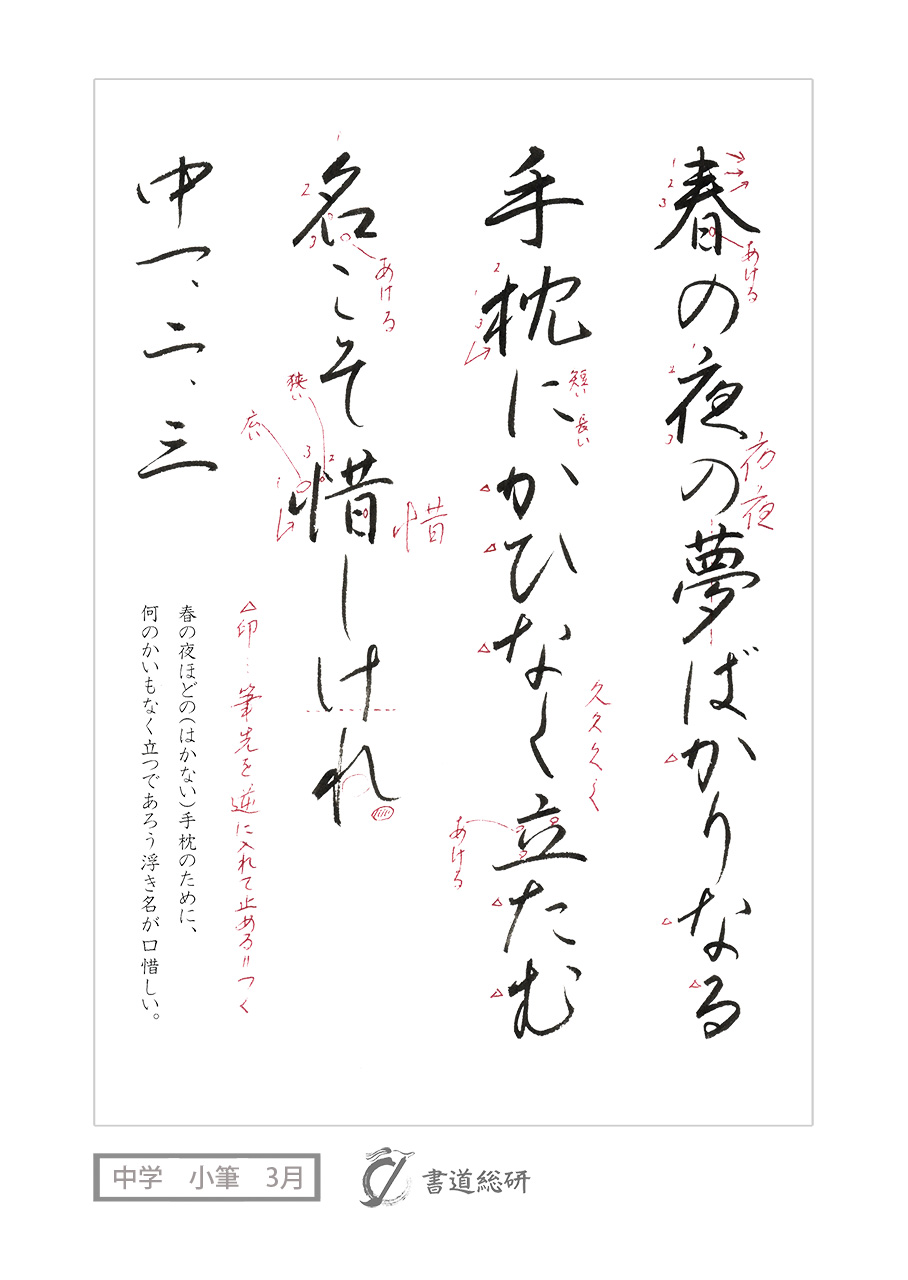 春の夜の夢ばかりなる
あける
夜
手枕にかひなく立たむ
短い 長い
久久久く
あける
名こそ惜しけれ
あける
狭い
広い
惜
△印…筆先を逆に入れて止める＝つく
中一、二、三
春の夜ほどの(はかない)手枕のために、
何のかいもなく立つであろう浮き名が口惜しい。
中学 小筆 3月
書道総研